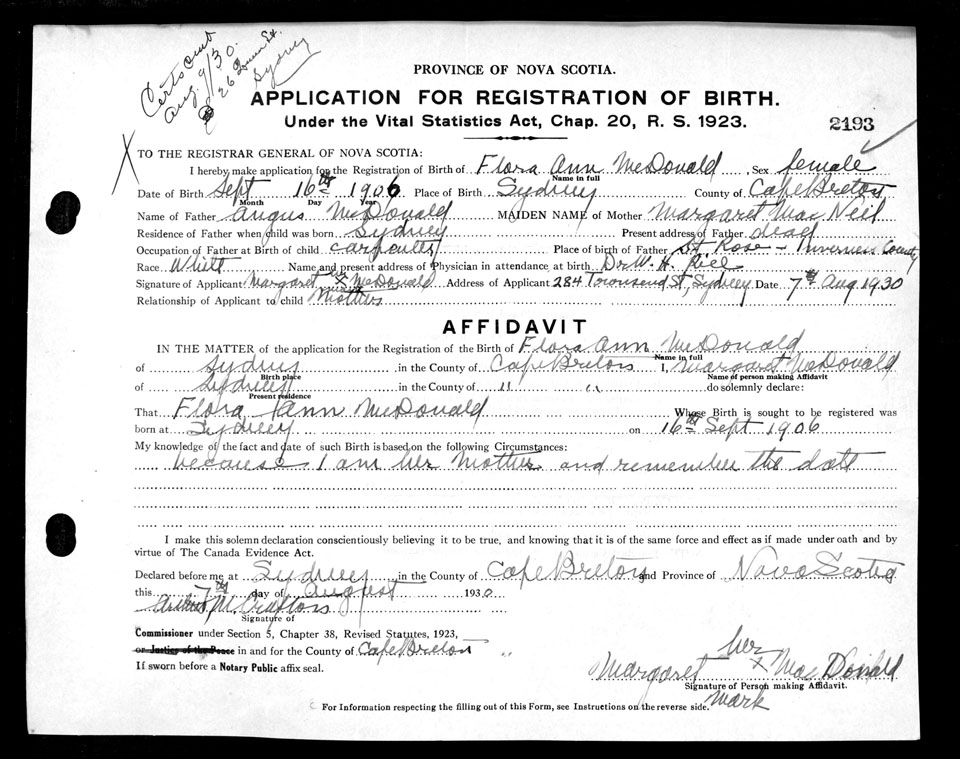 Certs Cert
Aug. 9/30.
26 St.
Sydney
PROVINCE OF NOVA SCOTIA.
APPLICATION FOR REGISTRATION OF BIRTH.
Under the Vital Statistics Act, Chap. 20, R. S. 1923.
2193
X
TO THE REGISTRAR GENERAL OF NOVA SCOTIA:
I hereby make application for the Registration of Birth of Flora Ann McDonald Sex female
Name in full
Date of Birth Sept 16th 1906 Place of Birth Sydney County of Cape Breton
Month Day Year
Name of Father Angus McDonald MAIDEN NAME of Mother Margaret Mac Neil
Residence of Father when child was born Sydney Present address of Father dead
Occupation of Father at Birth of child carpenter Place of birth of Father St Rose - Inverness County
Race White Name and present address of Physician in attendance at birth Dr W. H. Rice
Signature of Applicant Margaret her X mark McDonald Address of Applicant 284 Townsend St, Sydney Date 7th Aug 1930
Relationship of Applicant to child Mother
AFFIDAVIT
IN THE MATTER of the application for the Registration of the Birth of Flora Ann McDonald
Name in full
of Sydney in the County of Cape Breton I, Margaret McDonald
Birth place Name of person making Affidavit
of Sydney in the County of " " do solemnly declare:
Present residence
That Flora Ann McDonald Whose Birth is sought to be registered was
born at Sydney on 16th Sept 1906
My knowledge of the fact and date of such Birth is based on the following Circumstances:
because I am her Mother and remember the date
I make this solemn declaration conscientiously believing it to be true, and knowing that it is of the same force and effect as if made under oath and by
virtue of The Canada Evidence Act.
Declared before me at Sydney in the County of Cape Breton and Province of Nova Scotia
this 7th day of August 1930
M.
Signature of
Commissioner under Section 5, Chapter 38, Revised Statutes, 1923,
or Justice of the Peace in and for the County of Cape Breton "
If sworn before a Notary Public affix seal.
her
Margaret X Mac Donald
Signature of Person making Affidavit.
Mark
For Information respecting the filling out of this Form, see Instructions on the reverse side.